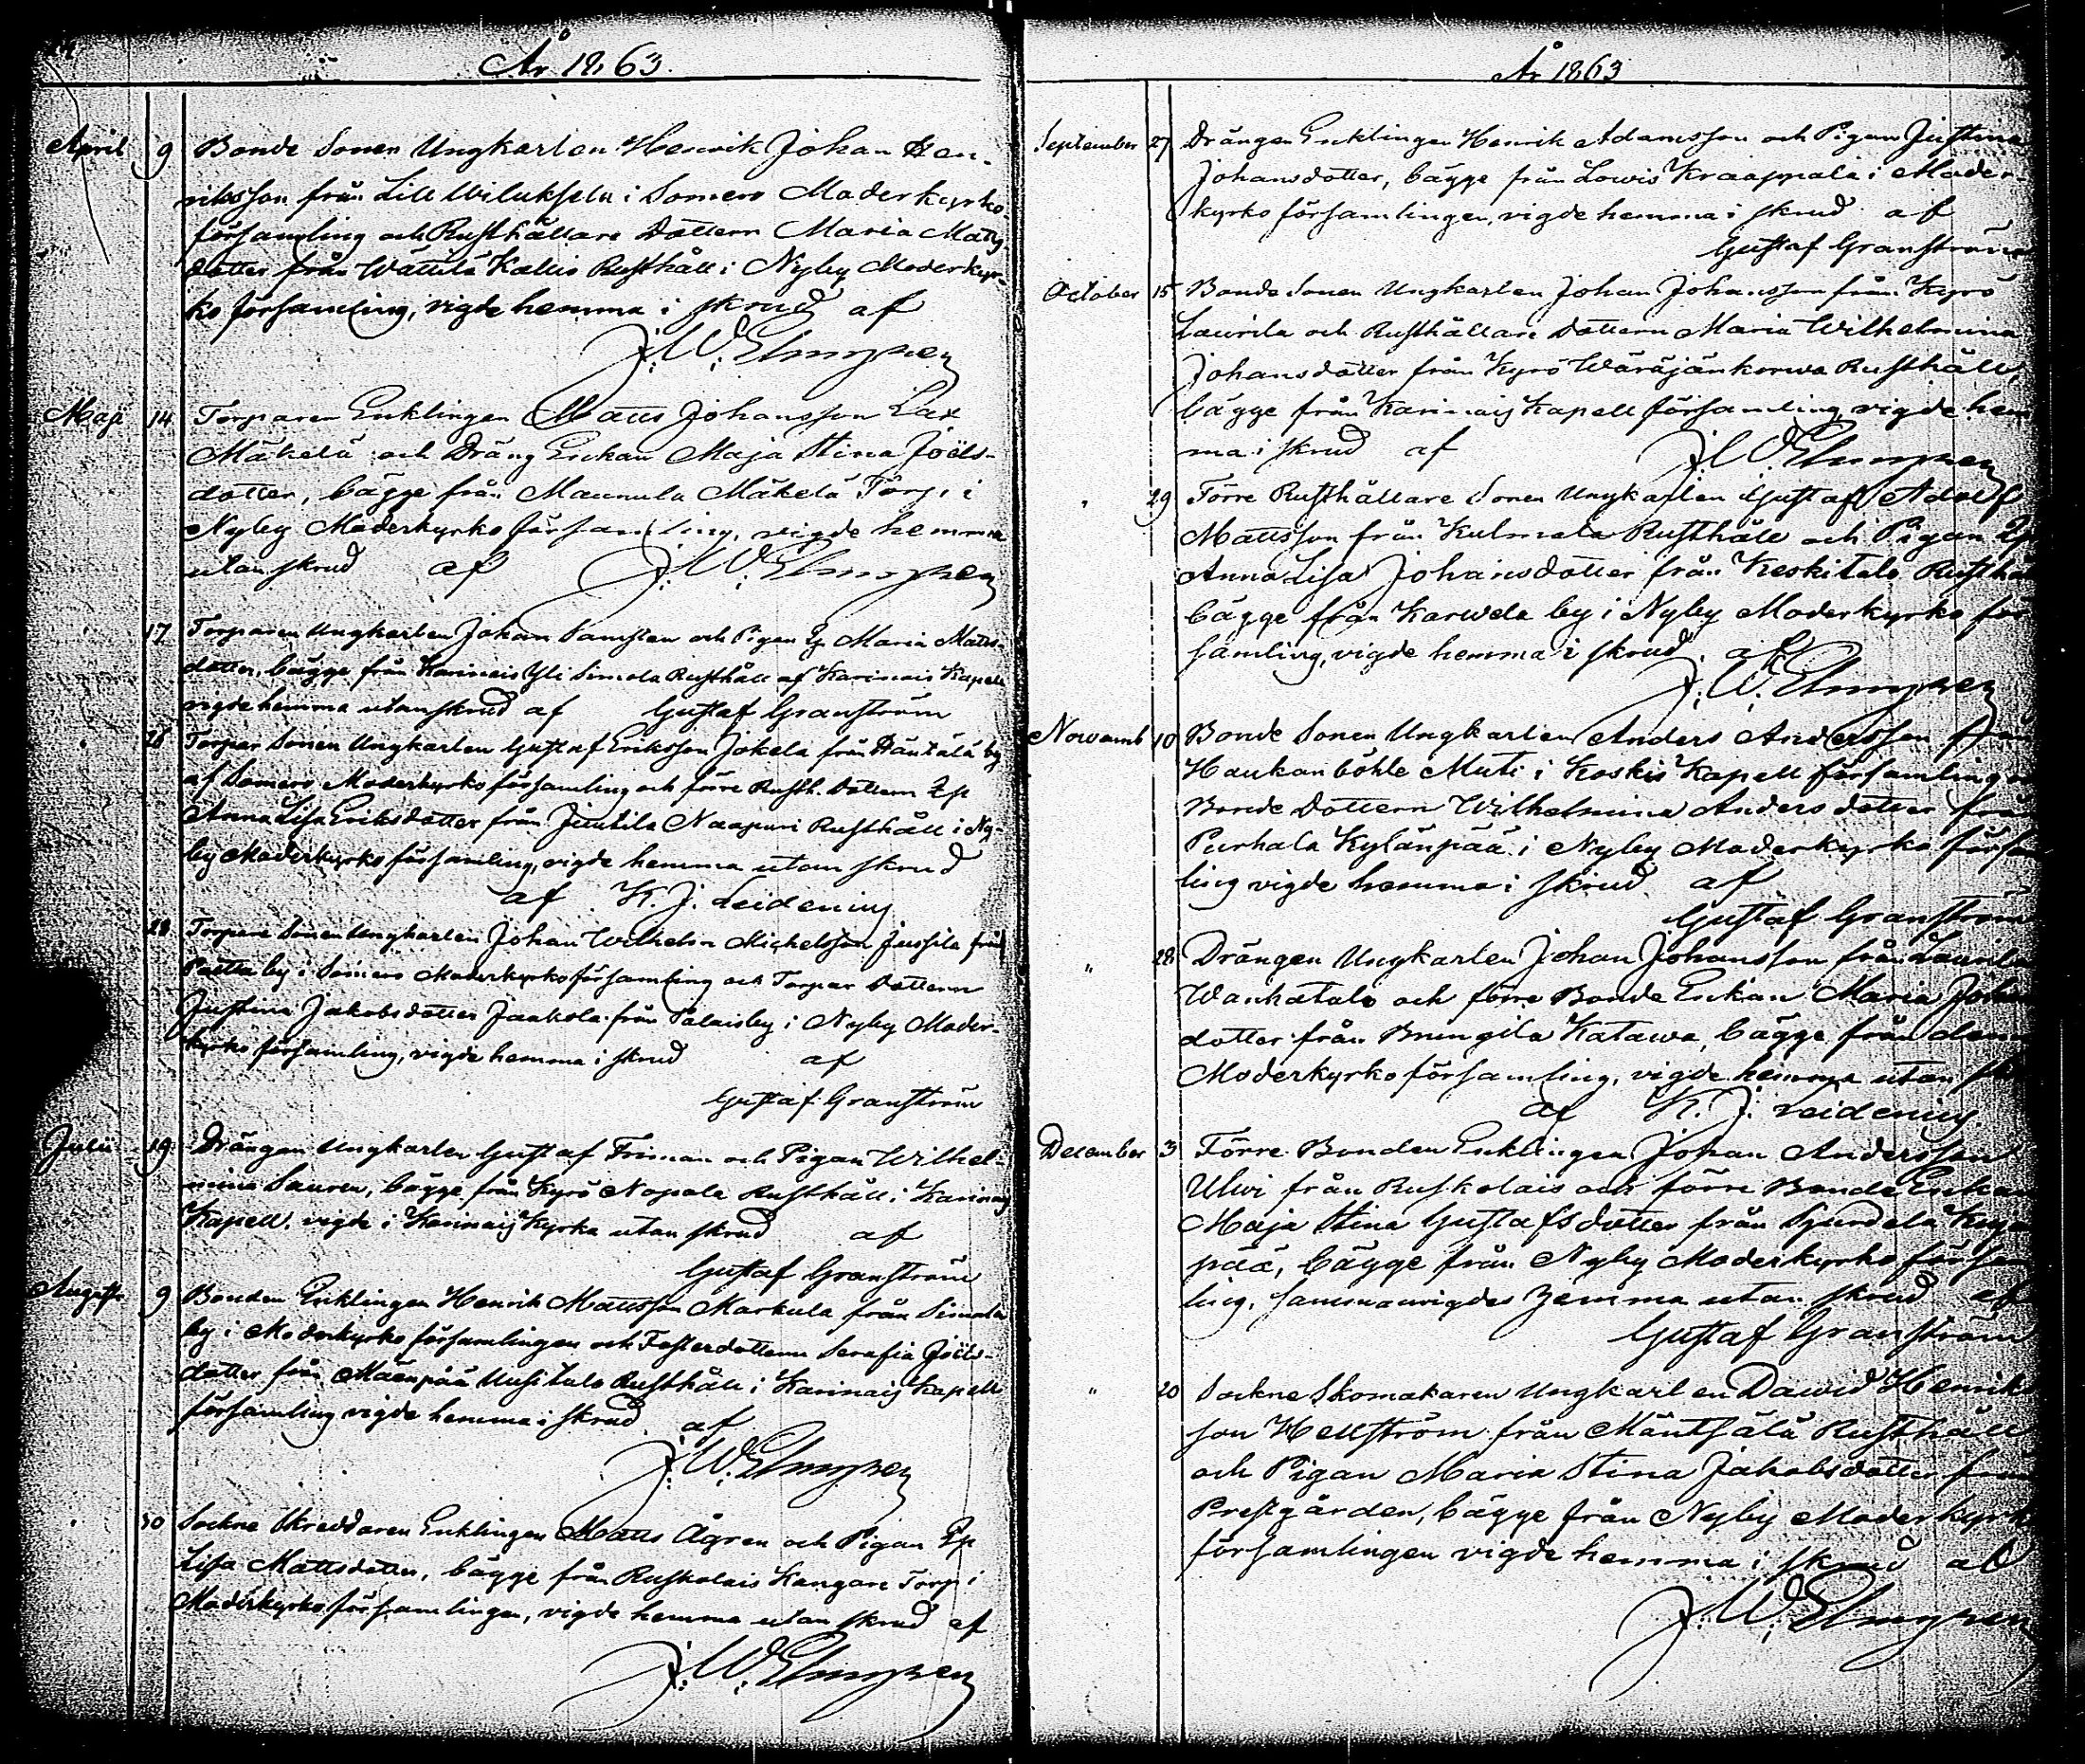 År 1863.
April 9 Bonde Sonen Ungkarlen Henrik Johan Hen-
riksson från Lill Wiluksela i Somero Moderkyrko-
församling och Rusthållare Dottern Maria Matts-
dotter från Wättilä Kallio Rusthåll i Nyby Moderkyr-
ko församling, vigde hemma i skrud af
J. W. Elmgren
Maji 14 Torparen Enklingen Matts Johansson Lax
Mäkelä och Dräng Enkan Maja Stina Joëls-
dotter, bägge från Maunula Mäkelä Torp i
Nyby Moderkyrko församling, vigde hemma
utan skrud af J. W. Elmgren
17 Torparen Ungkarlen Johan Samsten och Pigan Ep Maria Matts-
dotter, bägge från Karinais Yli Simola Rusthåll af Karinais Kapell
vigde hemma utan skrud af Gustaf Granström
28 Torpar Sonen Ungkarlen Gustaf Eriksson Jokela från Häntälä by
af Somero Moderkyrko församling och förre Rusth. Dottern Ep
Anna Lisa Eriksdotter från Juutila Naapuri Rusthåll i Ny-
by Moderkyrko församling, vigde hemma utan skrud
af K. J. Leidenius
28 Torpare Sonen Ungkarlen Johan Wilhelm Michelsson Jussila från
Palta by i Somero Moderkyrko församling och Torpar Dottern
Justina Jakobsdotter Jaakola från Palais by i Nyby Moder-
kyrko församling, vigde hemma i skrud af
Gustaf Granström
Julii 19 Drängen Ungkarlen Gustaf Friman och Pigan Wilhel-
mina Sauren, bägge från Kyrö Nopola Rusthåll i Karinais
Kapell, vigde i Karinais Kyrka utan skrud af
Gustaf Granström
Augusti 9 Bonden Enklingen Henrik Mattsson Markula från Simola
by i Moderkyrko församlingen och Fosterdottern Serafia Joëls-
dotter från Mäenpää Uusitalo Rusthåll i Karinais Kapell
församling vigde hemma i skrud af
J. W. Elmgren
30 Sockne Skreddaren Enklingen Matts Ågren och Pigan Ep
Lisa Mattsdotter, bägge från Ruskolais Kangare Torp i
Moderkyrko församlingen, vigde hemma utan skrud af
J. W. Elmgren
År 1863
September 27 Drängen Enklingen Henrik Adamsson och Pigan Justina
Johansdotter, bägge från Lowis Kraappala i Moder-
kyrko församlingen, vigde hemma i skrud af
Gustaf Granström
October 15 Bonde Sonen Ungkarlen Johan Johansson från Kyrö
Laurila och Rusthållare Dottern Maria Wilhelmina
Johansdotter från Kyrö Wäräjänkorwa Rusthåll,
bägge från Karinais Kapell församling vigde hem
ma i skrud af J. W. Elmgren
" 29 Förre Rusthållare Sonen Ungkarlen Gustaf Adolf
Mattsson från Kulmala Rusthåll och Pigan Ep
Anna Lisa Johansdotter från Keskitalo Rusthå
bägge från Karwela by i Nyby Moderkyrko för
samling, vigde hemma i skrud. af
J. W. Elmgren
Novemb 10 Bonde Sonen Ungkarlen Anders Andersson från
Haukanböhle Muti i Koskis Kapell församling
Bonde Dottern Wilhelmina Anders dotter från
Purhala Kylänpää i Nyby Moderkyrko försam
ling vigde hemma i skrud af
Gustaf Granström
" 28 Drängen Ungkarlen Johan Johansson från Laurila
Wanhatalo och förre Bonde Enkan Maria Johans
dotter från Brungila Katawa, bägge från denna
Moderkyrko församling, vigde hemma utan
af K. J. Leidenius
December 3 Förre Bonden Enklingen Johan Andersson
Ulwi från Ruskolais och förre Bonde Enkan
Maja Stina Gustafsdotter från
pää, bägge från Nyby Moderkyrko försam
ling, sammanvigdes hemma utan skrud af
Gustaf Granström
" 20 Sockne Skomakaren Ungkarlen Dawid Henriks
son Hellström från Mäntsälä Rusthåll
och Pigan Maria Stina Jakobsdotter från
Prestgården, bägge från Nyby Moderkyrko
församlingen vigde hemma i skrud af
J. W. Elmgren